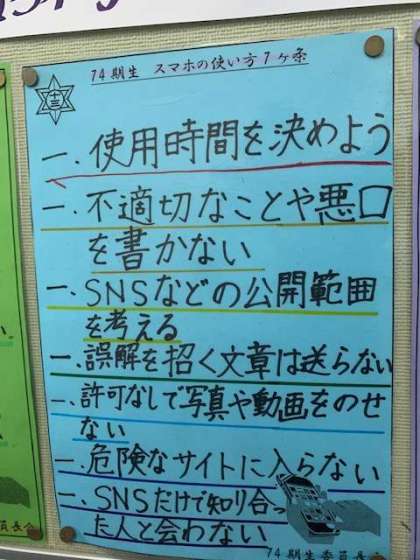 74期生 スマホの使い方7ヶ条
一、使用時間を決めよう
一、不適切なことや悪口
を書かない
一、SNSなどの公開範囲
を考える
一、誤解を招く文章は送らない
一、許可なしで写真や動画をのせ
ない
一、危険なサイトに入らない
一、SNSだけで知り合っ
た人と会わない
74期生委員長会